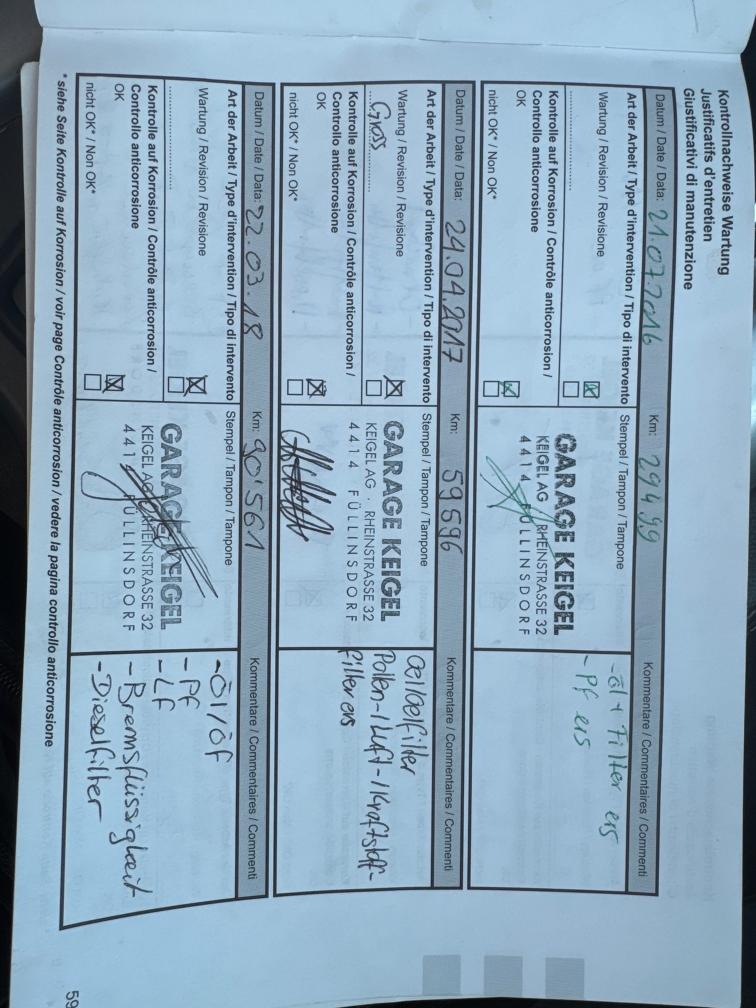 Kontrollnachweise Wartung
Justificatifs d'entretien
Giustificativi di manutenzione
Datum / Date / Data: 21.07.2016 Km: 29499 Kommentare / Commentaires / Commenti
Art der Arbeit / Type d'intervention / Tipo di intervento Stempel / Tampon / Tampone
Wartung / Revisione
Kontrolle auf Korrosion / Contrôle anticorrosion /
Controllo anticorrosione
OK
nicht OK* / Non OK*
GARAGE KEIGEL
KEIGEL AG RHEINSTRASSE 32
4414 FÜLLINSDORF
- Öl + Filter ers
- PF ers
Datum / Date / Data: 24.04.2017 Km: 59596 Kommentare / Commentaires / Commenti
Art der Arbeit / Type d'intervention / Tipo di intervento Stempel / Tampon / Tampone
Wartung / Revisione
Gross
Kontrolle auf Korrosion / Contrôle anticorrosion /
Controllo anticorrosione
OK
nicht OK* / Non OK*
GARAGE KEIGEL
KEIGEL AG · RHEINSTRASSE 32
4414 FÜLLINSDORF
Oel/oelfilter
Pollen-/Luft-/Kraftstoff-
filter ers
Datum / Date / Data: 22.03.18 Km: 90'561 Kommentare / Commentaires / Commenti
Art der Arbeit / Type d'intervention / Tipo di intervento Stempel / Tampon / Tampone
Wartung / Revisione
Kontrolle auf Korrosion / Contrôle anticorrosion /
Controllo anticorrosione
OK
nicht OK* / Non OK*
GARAGE KEIGEL
KEIGEL AG RHEINSTRASSE 32
4414 FÜLLINSDORF
- Öl/öf
- PF
- LF
- Bremsflüssigkeit
- Dieselfilter
* siehe Seite Kontrolle auf Korrosion / voir page Contrôle anticorrosion / vedere la pagina controllo anticorrosione
59